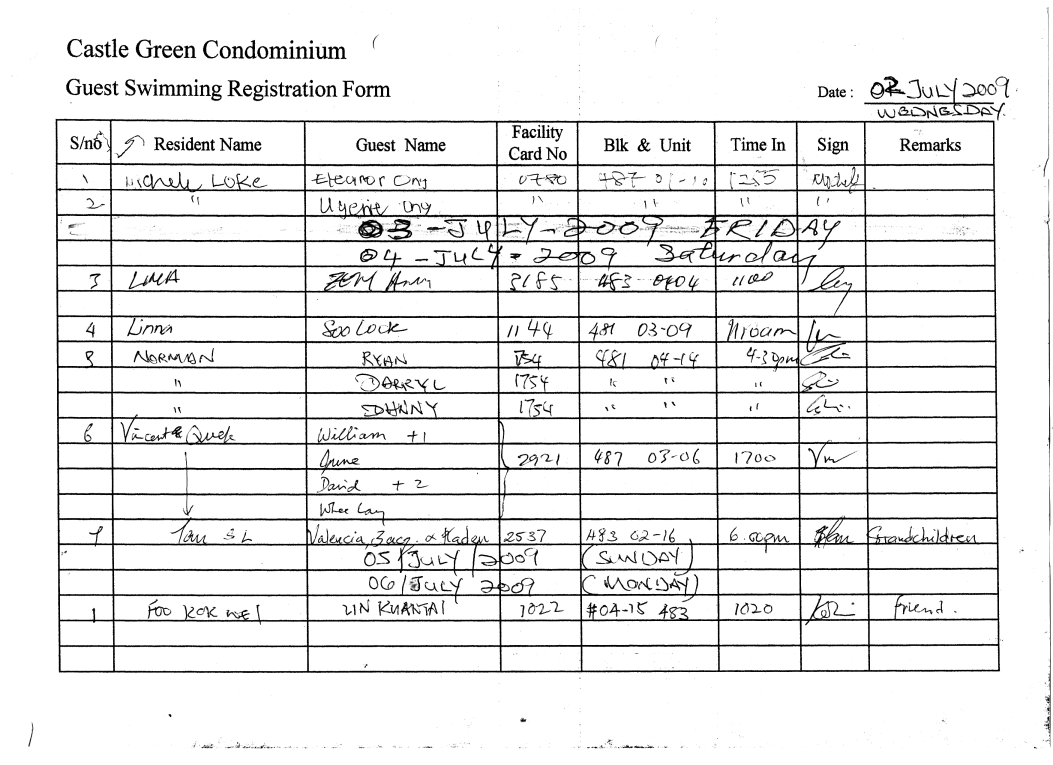 Castle Green Condominium
Guest Swimming Registration Form
Date : 02 JULY 2009
WEDNESDAY.
S/no Resident Name Guest Name Facility Card No Blk & Unit Time In Sign Remarks
1 Michele LOKE Eleanor Ong 0780 487 01-10 1255
2 " Ong " " " "
03 - JULY - 2009 FRIDAY
04 - JULY - 2009 Saturday
3 LINA 3185 483 0404 1100
4 Linna Soo Lock 1144 481 03-09 1100am
5 NORMAN RYAN 1754 481 04-14 4-30pm
" DARRYL 1754 " " "
" JOHNNY 1754 " " "
6 Vincent Quek William +1
June 2921 487 03-06 1700
David + 2
Whee Lay
7 Tan S L Valencia, Zacg. & Kaden 2537 483 02-16 6.00pm Grandchildren
05 / JULY / 2009 (SUNDAY)
06 / JULY 2009 (MONDAY)
1 FOO KOK WEI LIN KUANTAI 1022 #04-15 483 1020 friend.